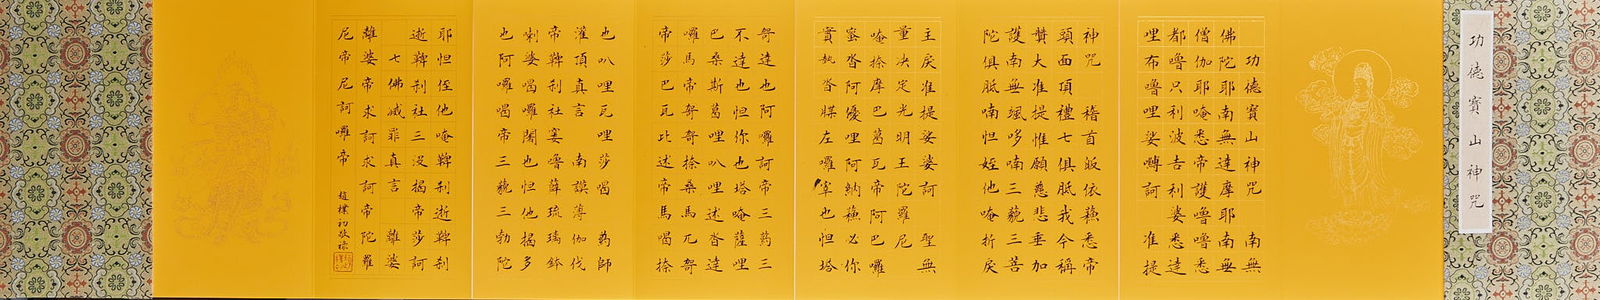 功德寶山神咒
功德寶山神咒 南無
佛陀耶南無達摩耶南無
僧伽耶唵悉帝護嚕嚕悉
都嚕只利波吉利婆悉達
哩布嚕哩娑嚩訶 准提
神咒 稽首皈依蘇悉帝
頭面頂禮七俱胝我今稱
讚大准提惟願慈悲垂加
護南無颯哆喃三藐三菩
陀俱胝喃怛姪他唵折戾
主戾准提娑婆訶 聖無
量決定光明王陀羅尼
唵捺摩巴葛瓦帝阿巴囉
蜜沓阿優哩阿納蘇必你
實執沓牒左囉宰也怛塔
哿達也阿囉訶帝三藥三
不達也怛你也塔唵薩哩
巴桑斯葛哩叭哩述沓達
囉馬帝哿哿捺桑馬兀哿
帝莎巴瓦比述帝馬喝捺
也叭哩瓦哩莎喝 藥師
灌頂真言 南謨薄伽伐
帝鞞剎社窶嚕薜琉璃鉢
喇婆喝囉闍也怛他揭多
也阿囉喝帝三藐三勃陀
耶怛侄他唵鞞剎逝鞞剎
逝鞞剎社三沒揭帝莎訶
七佛滅罪真言 離婆
離婆帝求訶求訶帝陀羅
尼帝尼訶囉帝
趙樸初敬錄